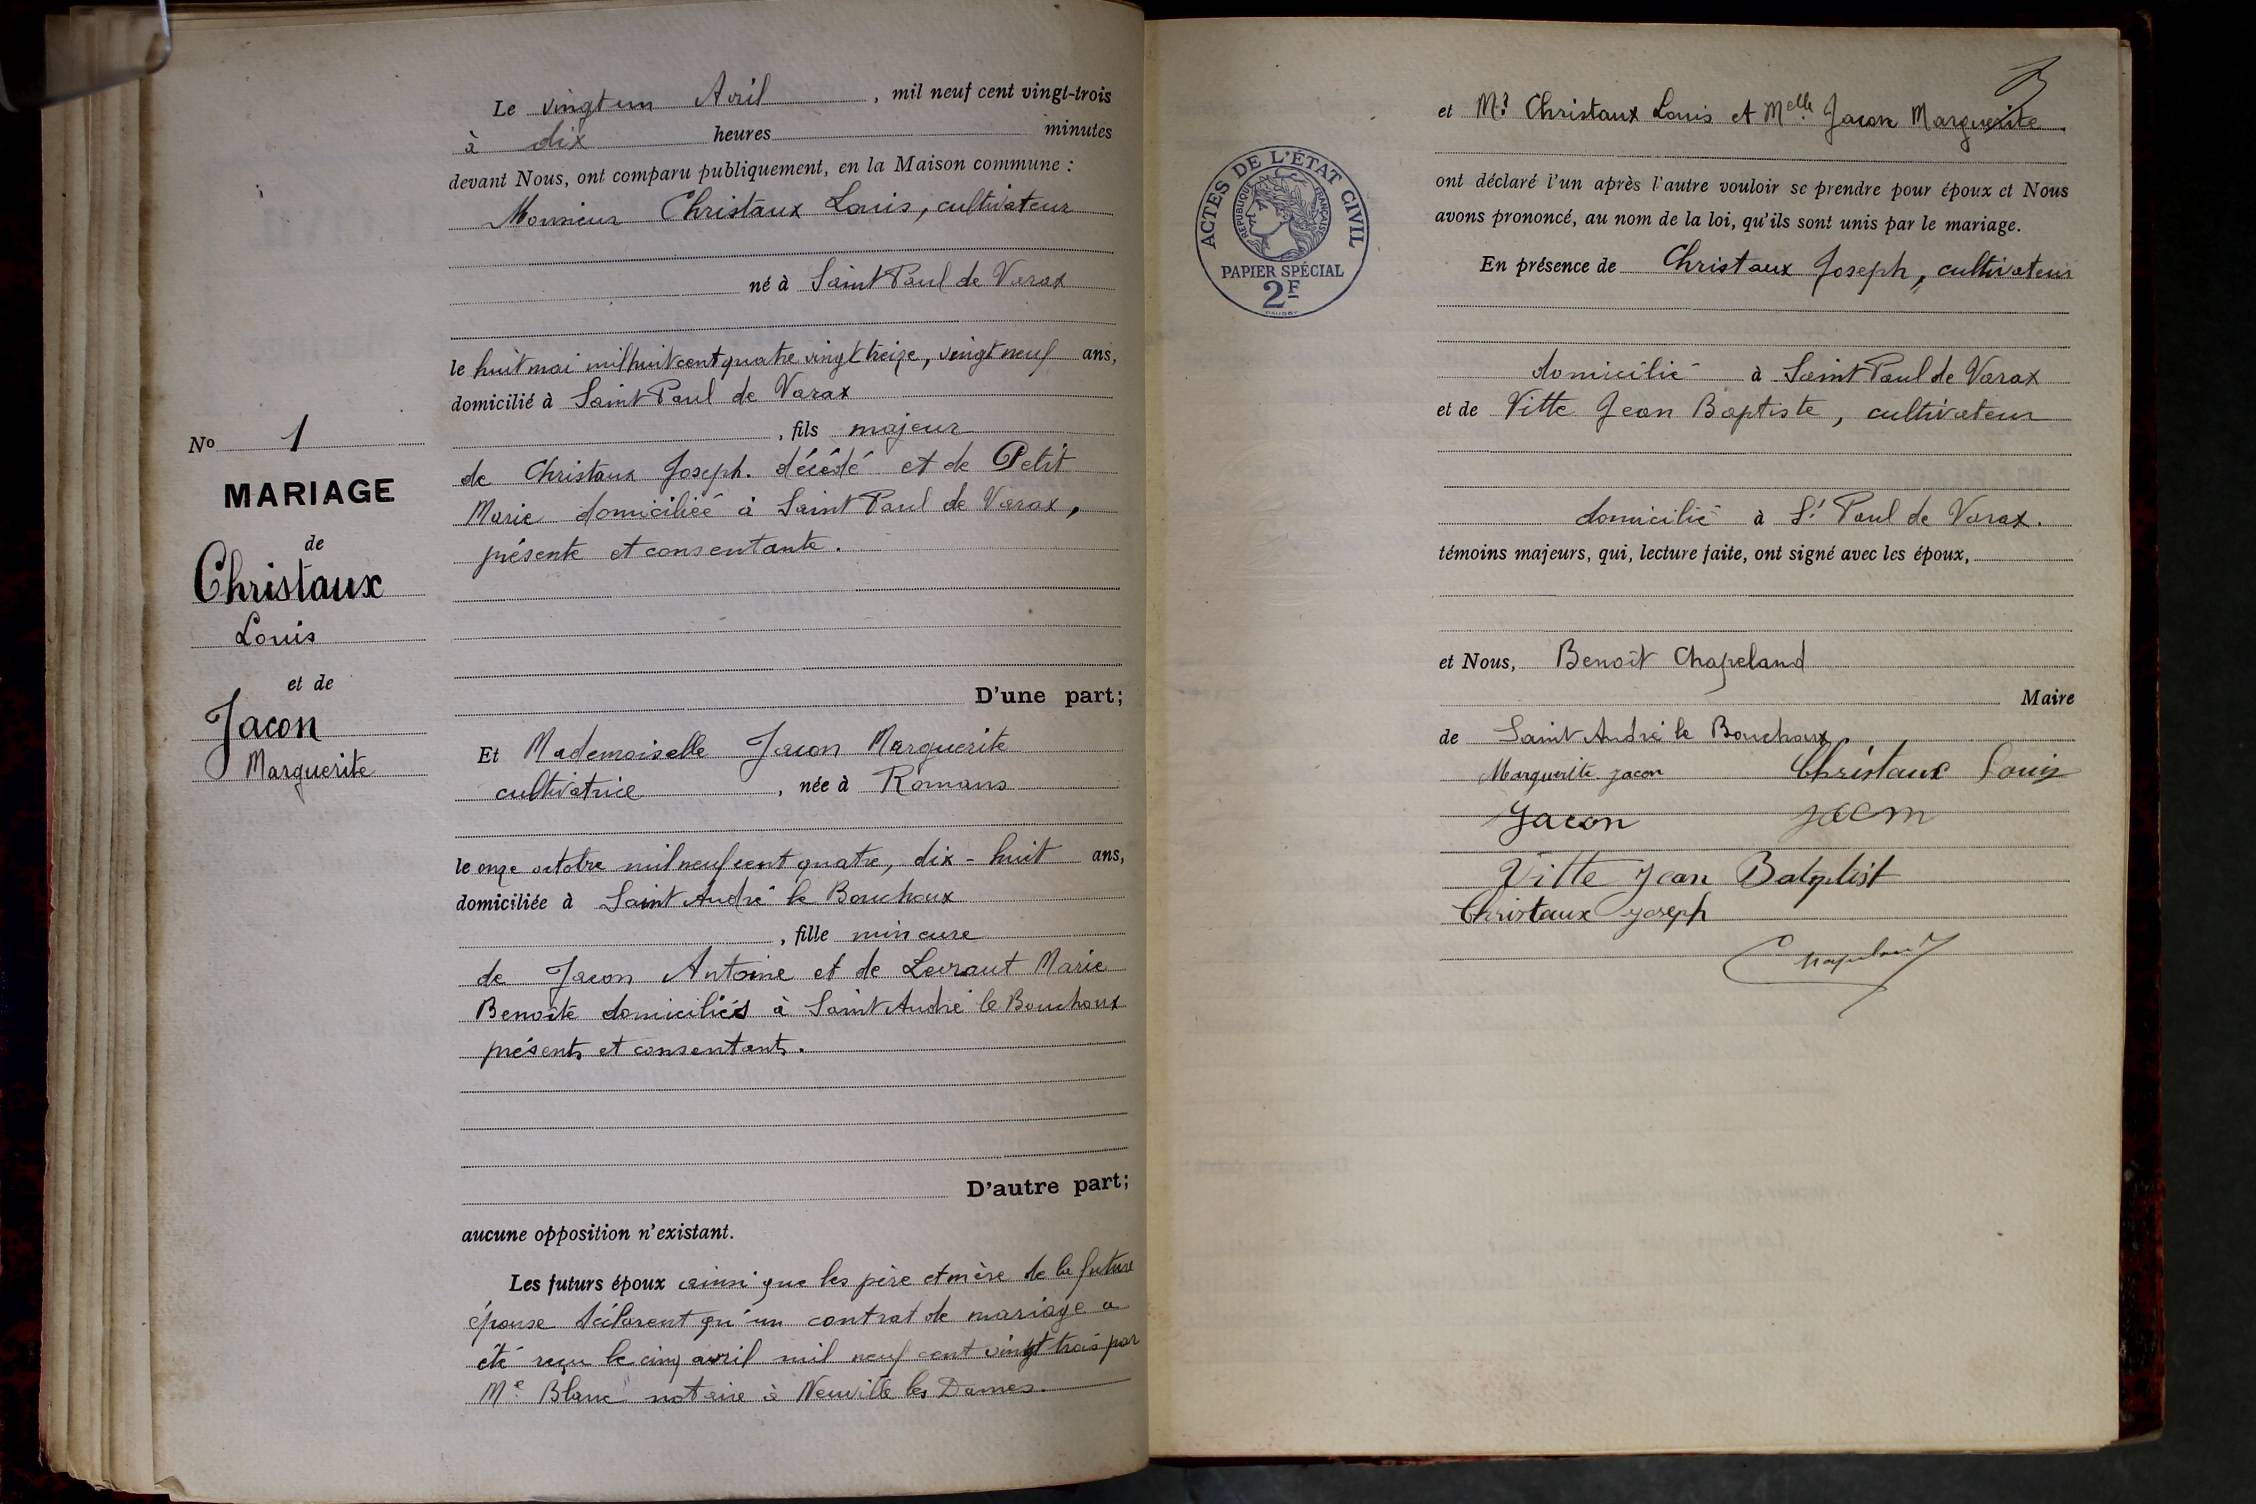 Le vingt un Avril, mil neuf cent vingt-trois
à dix heures minutes
devant Nous, ont comparu publiquement, en la Maison commune :
Monsieur Christaux Louis, cultivateur
né à Saint Paul de Varax
le huit mai mil huit cent quatre vingt treize, vingt neuf ans,
domicilié à Saint Paul de Varax
, fils majeur
de Christaux Joseph. décédé et de Petit
Marie domiciliée à Saint Paul de Varax,
présente et consentante.
D'une part;
Et Mademoiselle Jacon Marguerite
cultivatrice, née à Romans
le onze octobre mil neuf cent quatre, dix-huit ans,
domiciliée à Saint André le Bouchoux
, fille mineure
de Jacon Antoine et de Levraut Marie
Benoite domiciliés à Saint André le Bouchoux
présents et consentants.
D'autre part;
aucune opposition n'existant.
Les futurs époux ainsi que les père et mère de la future
épouse déclarent qu'un contrat de mariage a
été reçu le cinq avril mil neuf cent vingt trois par
Me Blanc notaire à Neuville les Dames.
No 1
MARIAGE
de
Christaux
Louis
et de
Jacon
Marguerite
et Mr Christaux Louis et Melle Jacon Marguerite.
ont déclaré l'un après l'autre vouloir se prendre pour époux et Nous
avons prononcé, au nom de la loi, qu'ils sont unis par le mariage.
En présence de Christaux Joseph, cultivateur
domicilié à Saint Paul de Varax
et de Vitte Jean Baptiste, cultivateur
domicilié à St Paul de Varax.
témoins majeurs, qui, lecture faite, ont signé avec les époux,
et Nous, Benoît Chapeland
Maire
de Saint André le Bouchoux.
Marguerite Jacon Christaux Louis
Jacon Jacon
Vitte Jean Batptist
Christaux Joseph
Chapeland
ACTES DE L'ÉTAT CIVIL
RÉPUBLIQUE FRANÇAISE
PAPIER SPÉCIAL
2F